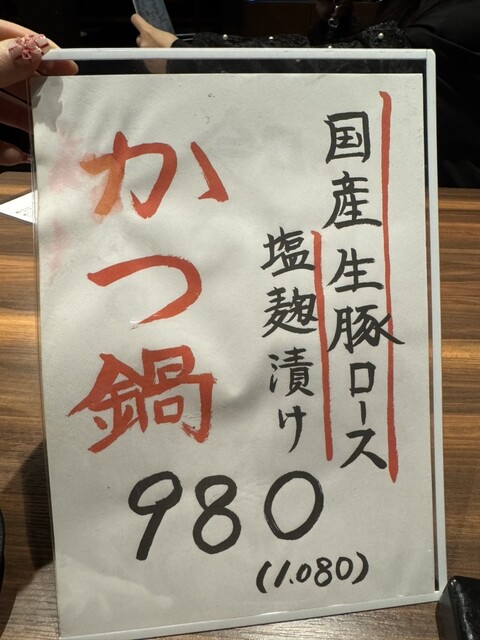 国産生豚ロース
塩麹漬け
かつ鍋
980
(1.080)